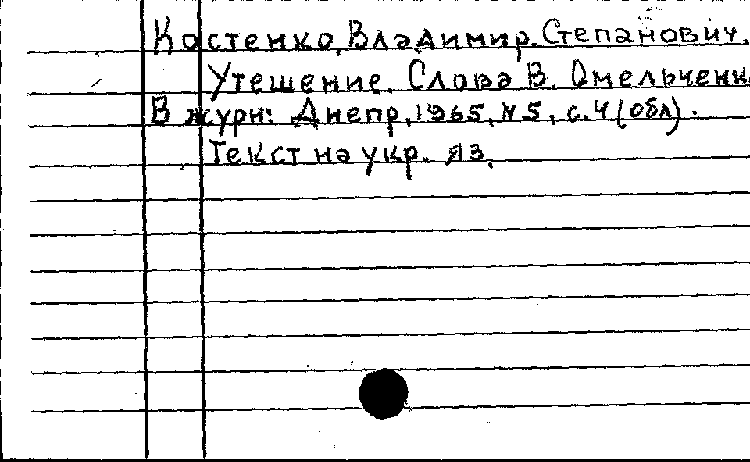 Костенко, Владимир Степанович.
Утешение. Слова В. Омельченк
В журн: Днепр, 1965, N 5, с. 4 (обл).
Текст на укр. яз.